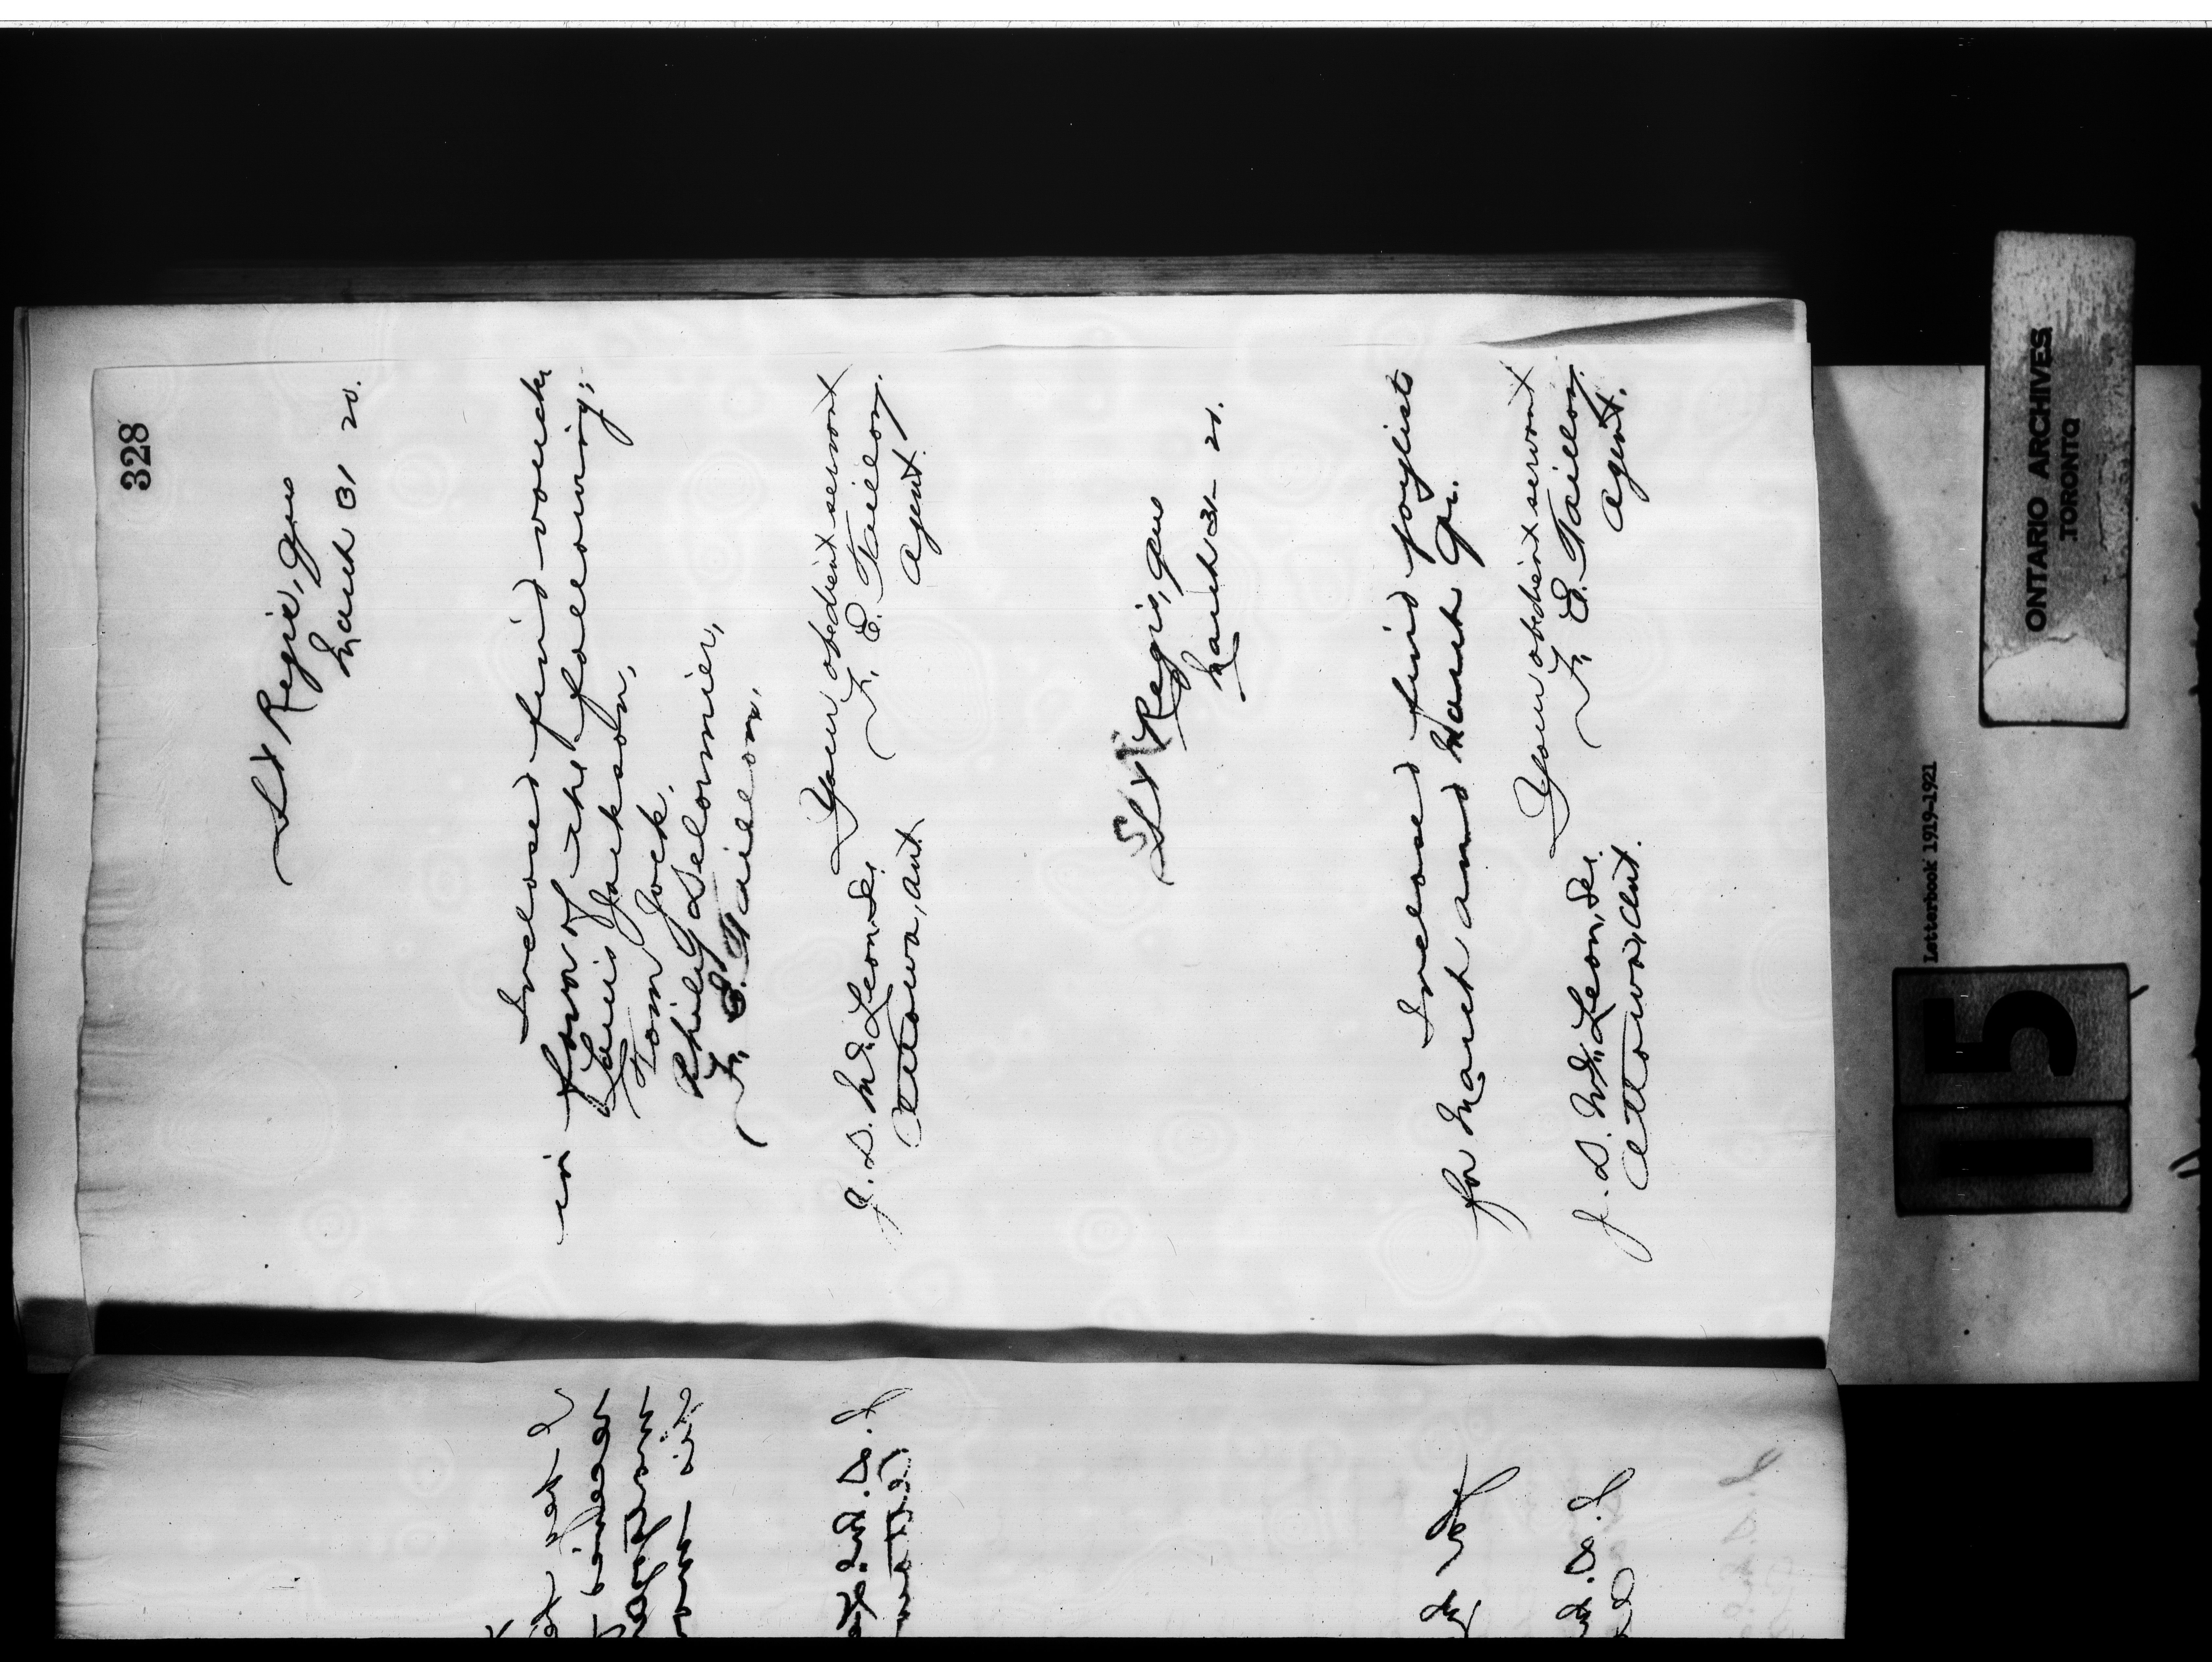 328
St Regis, Que
March 31 20.
Inclosed find vouchers
in favor of the following;
Louis Jackson,
Tom Jock,
Philip Delormier,
F. E. Taillon,
Your obedient servant
F. E. Taillon,
Agent.
J. D. McLean, Sec.
Ottawa, Ont
St Regis, Que
March 31 - 20.
Inclosed find paylists
for March and March Qr.
Your obedient servant
F. E. Taillon,
Agent.
J. D. McLean, Sec.
Ottawa, Ont.
Letterbook 1919-1921
15
ONTARIO ARCHIVES
TORONTO